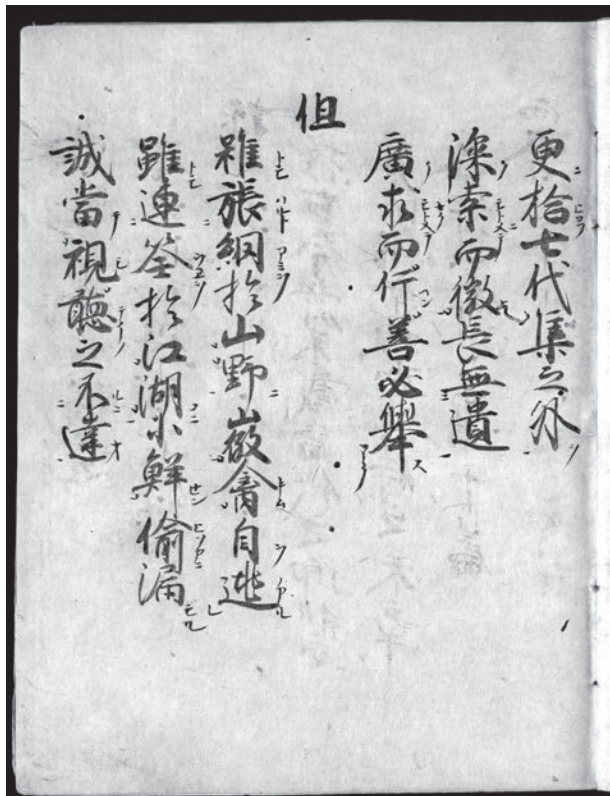 更拾七代集之外
深索而微長無遺
廣求而片善必舉
但
雖張網於山野微禽自逃
雖連筌於江湖小鮮偷漏
誠當視聽之不達